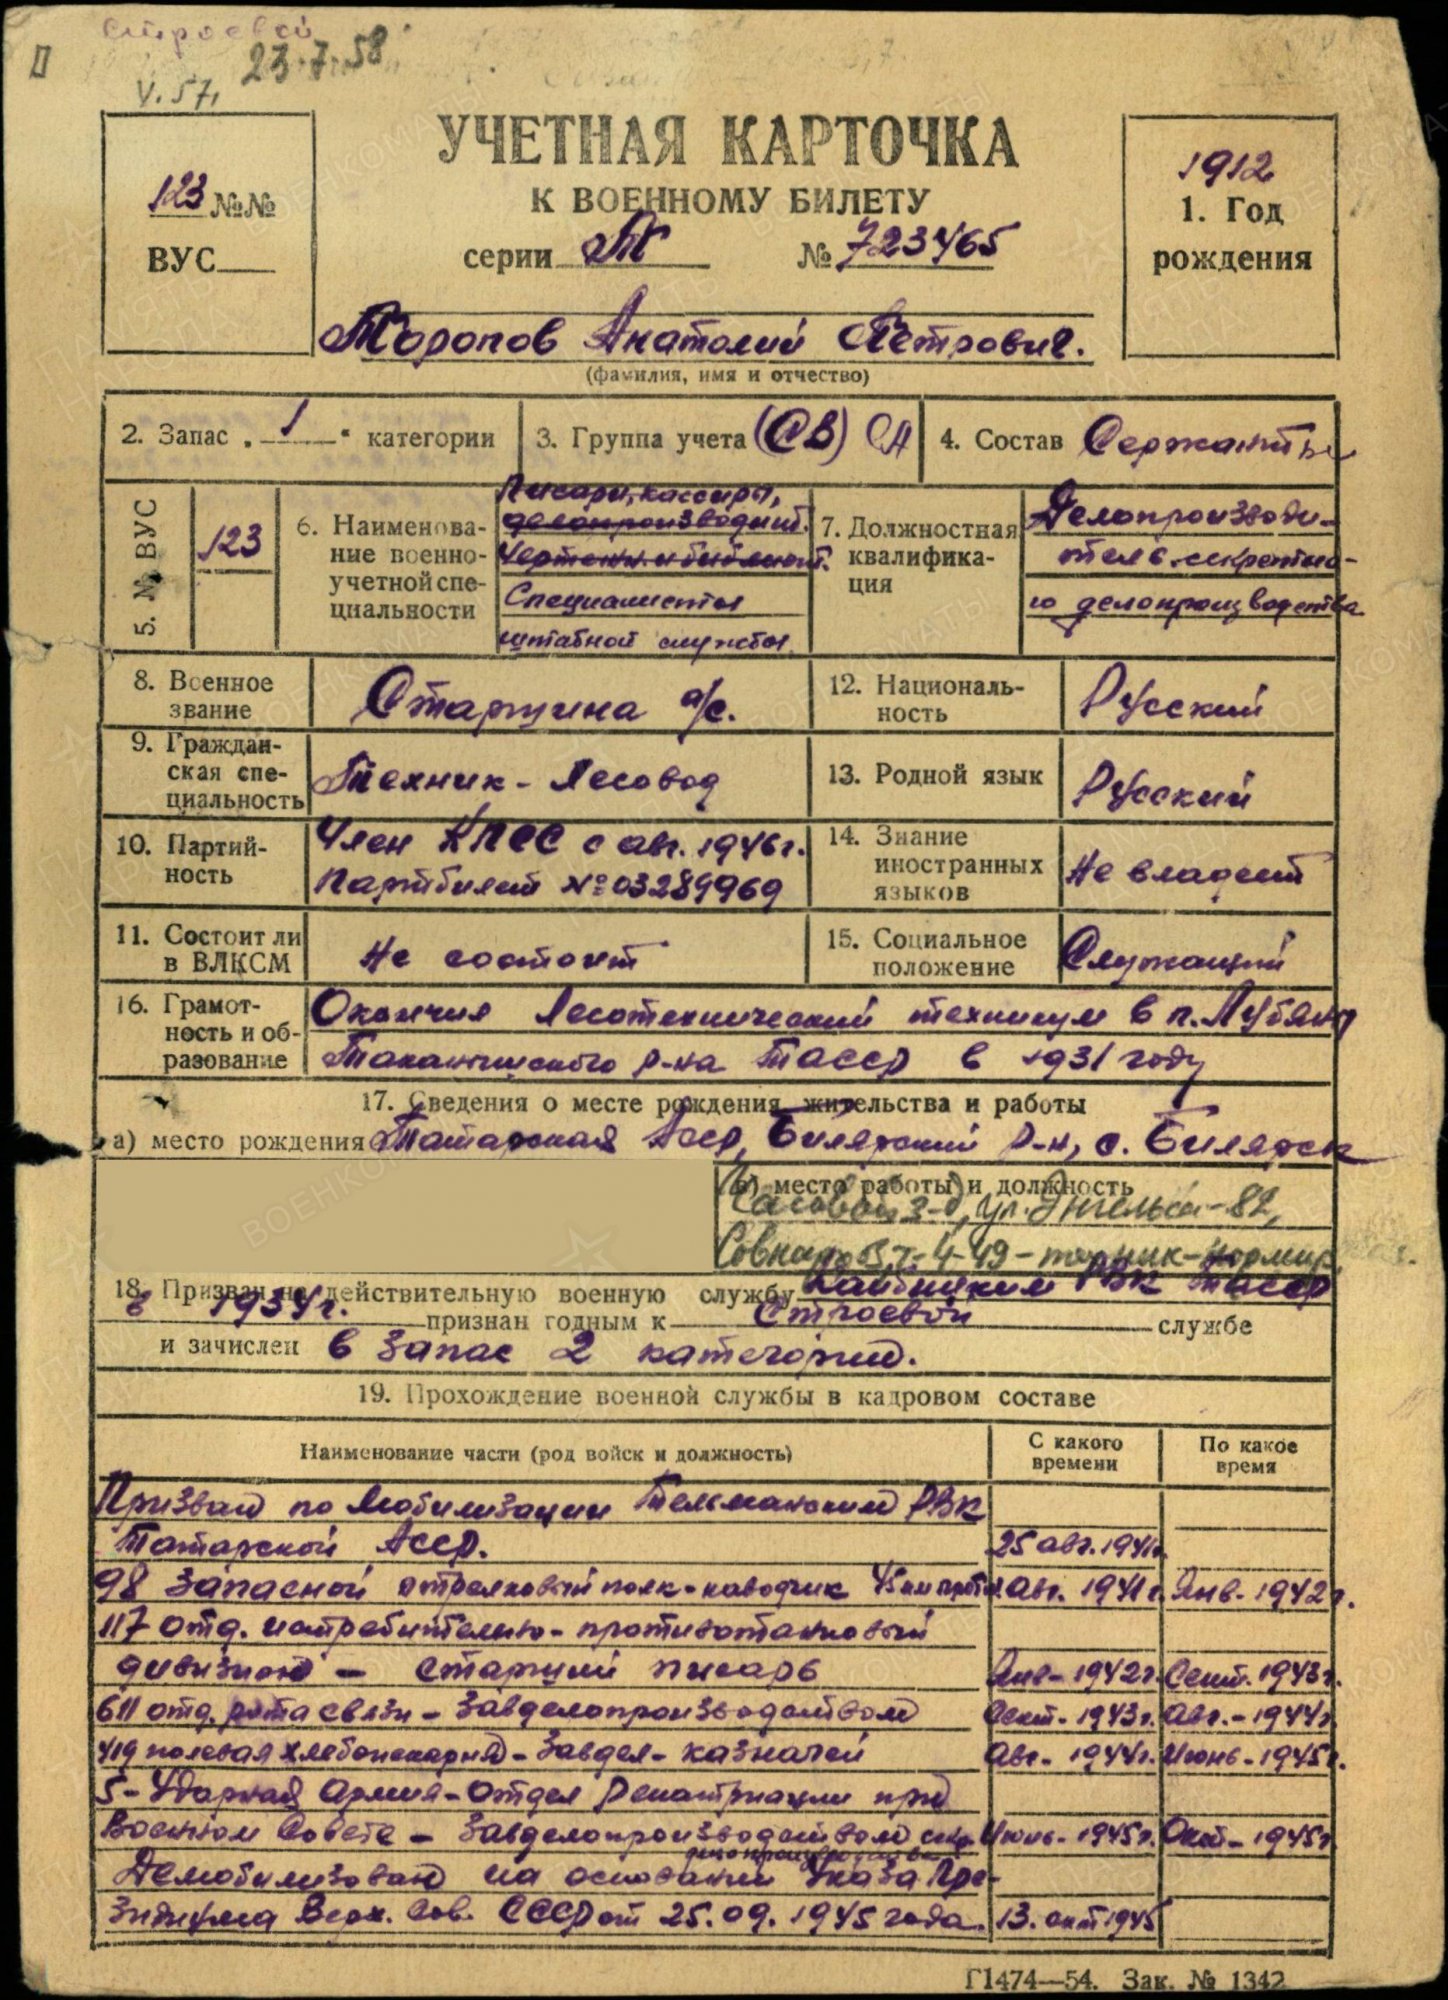 Строевой
23.7.58
V.57.
УЧЕТНАЯ КАРТОЧКА
К ВОЕННОМУ БИЛЕТУ
серии ТК № 723465
123 №№
ВУС
1912
1. Год
рождения
Торопов Анатолий Петрович.
(фамилия, имя и отчество)
2. Запас „ 1 “ категории
3. Группа учета (СВ) СА
4. Состав Сержанты
5. № ВУС
123
6. Наименова-
ние военно-
учетной спе-
циальности
Писари, кассиры,
делопроизводит.
чертежн. и библиот.
Специалисты
штабной службы
7. Должностная
квалифика-
ция
Делопроизводи-
тель секретно-
го делопроизводства
8. Военное
звание
Старшина а/с.
9. Граждан-
ская спе-
циальность
Техник - Лесовод
10. Партий-
ность
Член КПСС с авг. 1946 г.
Партбилет № 03289969
11. Состоит ли
в ВЛКСМ
Не состоит
12. Националь-
ность
Русский
13. Родной язык
Русский
14. Знание
иностранных
языков
Не владеет
15. Социальное
положение
Служащий
16. Грамот-
ность и об-
разование
Окончил Лесотехнический техникум в п. Лубяны
Таканышского р-на ТАССР в 1931 году
17. Сведения о месте рождения, жительства и работы
а) место рождения Татарская АССР, Билярский р-н, с. Билярск
в) место работы и должность
Часовой з-д, ул. Энгельса-82,
18. Призван на действительную военную службу РВК ТАССР
в 1934 г. признан годным к Строевой службе
и зачислен в запас 2 категории.
19. Прохождение военной службы в кадровом составе
Наименование части (род войск и должность)
С какого
времени
По какое
время
Призван по мобилизации Тельманским РВК
Татарской АССР. 25 авг. 1941 г.
98 Запасной стрелковый полк - наводчик 45 мм Авг. 1941 г. Янв. - 1942 г.
117 отд. истребительно-противотанковый
дивизион - старший писарь Янв - 1942 г. Сент. 1943 г.
611 отд. рота связи - Завделопроизводством Сент. - 1943 г. Авг. - 1944 г.
419 полевая хлебопекарня - Завдел - казначей Авг - 1944 г. Июнь - 1945 г.
5 - Ударная Армия - отдел Репатриации при
Военном Совете - Завделопроизводством секр. Июнь - 1945 г. Окт - 1945 г.
делопроизводства
Демобилизован на основании Указа Пре-
зидиума Верх. Сов. СССР от 25.09.1945 года. 13. окт 1945
Г1474—54. Зак. № 1342